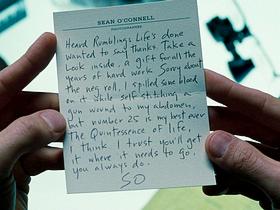 SEAN O'CONNELL
Heard Rumblings Life's done
wanted to say Thanks. Take a
Look inside, a gift for all the
years of hard work. Sorry about
the neg roll, I spilled some blood
on it while self stitching a
gun wound to my abdomen,
but number 25 is my best ever
The Quintessence of life,
I think I trust you'll get
it where it needs to go,
you always do.
SO